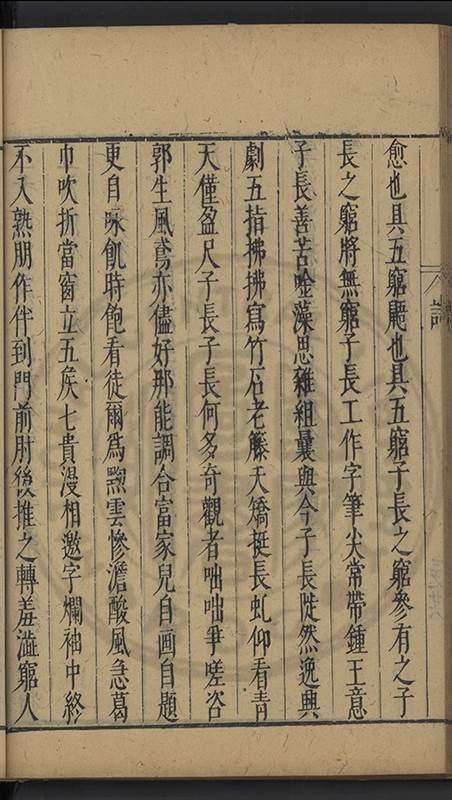 愈也具五窮颺也具五窮子長之窮參有之子
長之窮將無窮子長工作字筆尖常帶鍾王意
子長善苦唫藻思雜組曩與今子長陡然逸興
劇五指拂拂寫竹石老籐夭矯挺長虬仰看青
天僅盈尺子長子長何多奇觀者咄咄爭嗟咨
郭生風鳶亦儘好那能調合富家兒自画自題
更自咏飢時飽看徒爾爲黙雲慘澹酸風急葛
巾吹折當窗立五矦七貴漫相邀字爛袖中終
不入熟朋作伴到門前肘後推之轉羞澁窮人